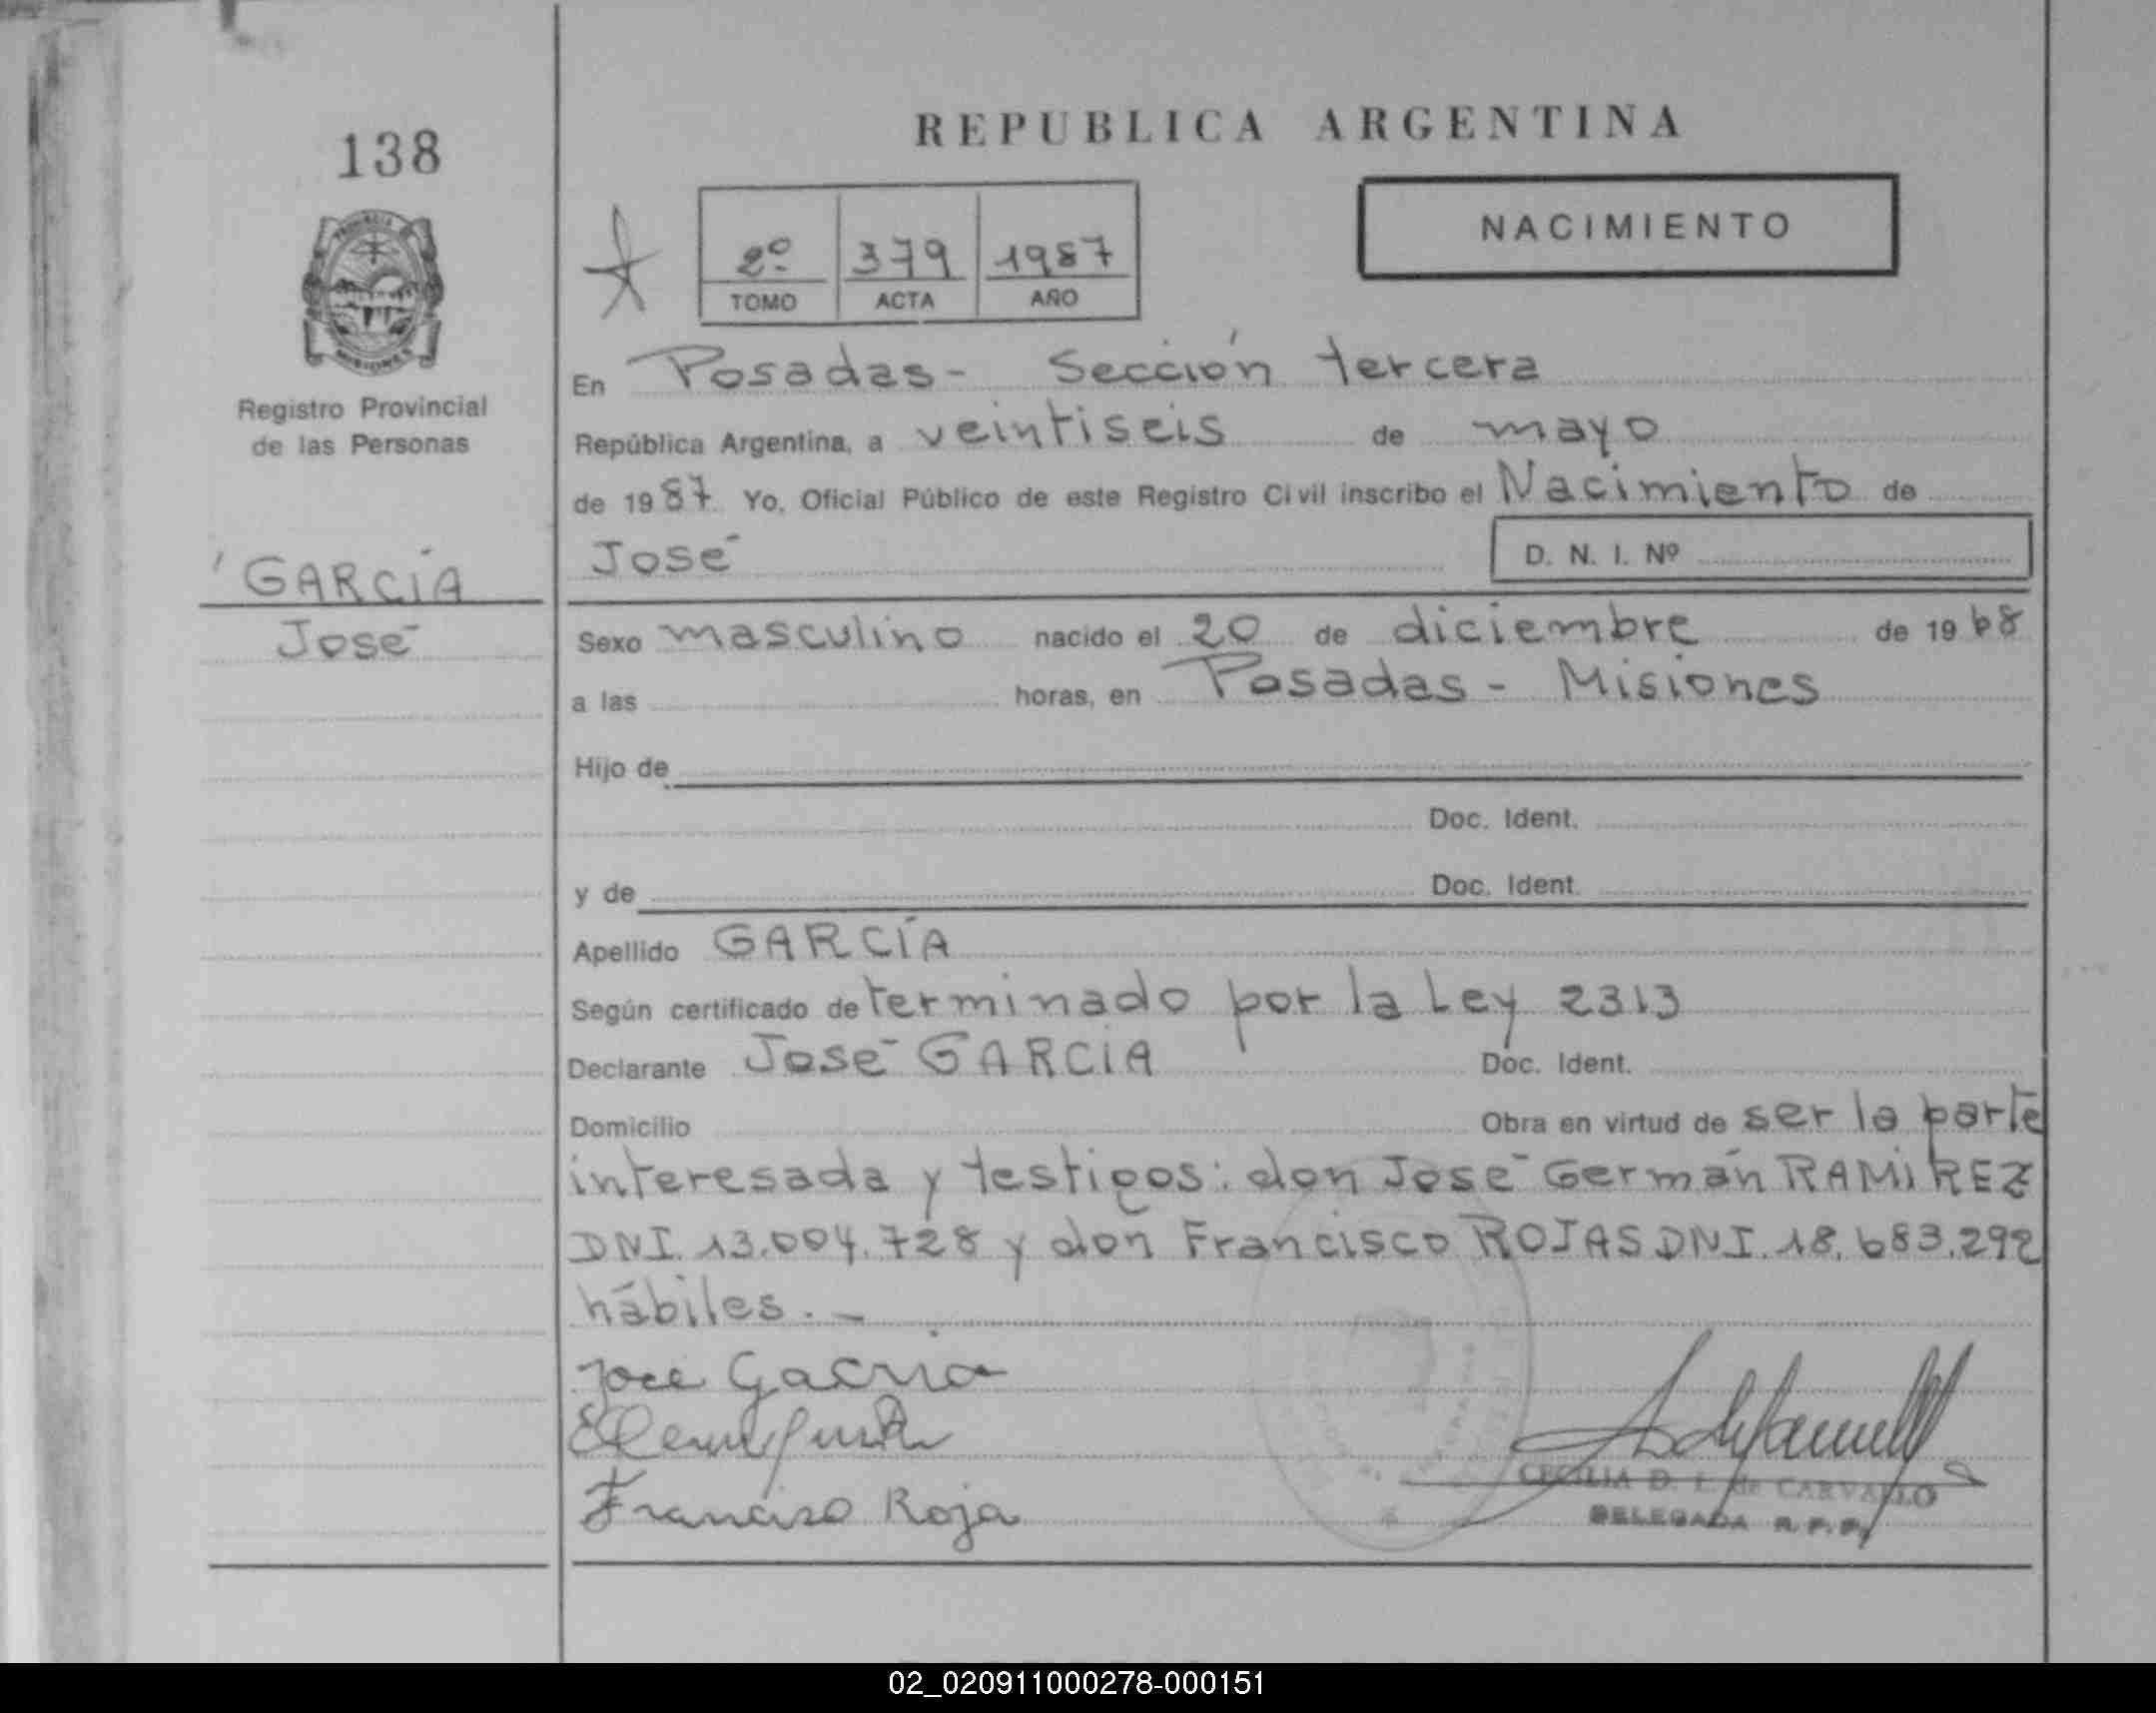 138
REPUBLICA ARGENTINA
NACIMIENTO
2º 379 1987
TOMO ACTA AÑO
Registro Provincial
de las Personas
En Posadas - Sección tercera
República Argentina, a veintiseis de mayo
de 1987. Yo, Oficial Público de este Registro Civil inscribo el Nacimiento de
José D. N. I. Nº
GARCÍA
José
Sexo masculino nacido el 20 de diciembre de 1968
a las horas, en Posadas - Misiones
Hijo de
Doc. Ident.
y de Doc. Ident.
Apellido GARCÍA
Según certificado determinado por la Ley 2313
Declarante José GARCIA Doc. Ident.
Domicilio Obra en virtud de ser la parte
interesada y testigos: don José Germán RAMIREZ
DNI. 13.004.728 y don Francisco ROJAS DNI. 18.683.292
hábiles. -
Francisco Roja
CECILIA D. L. de CARVALLO
DELEGADA R.P.P.
02_020911000278-000151